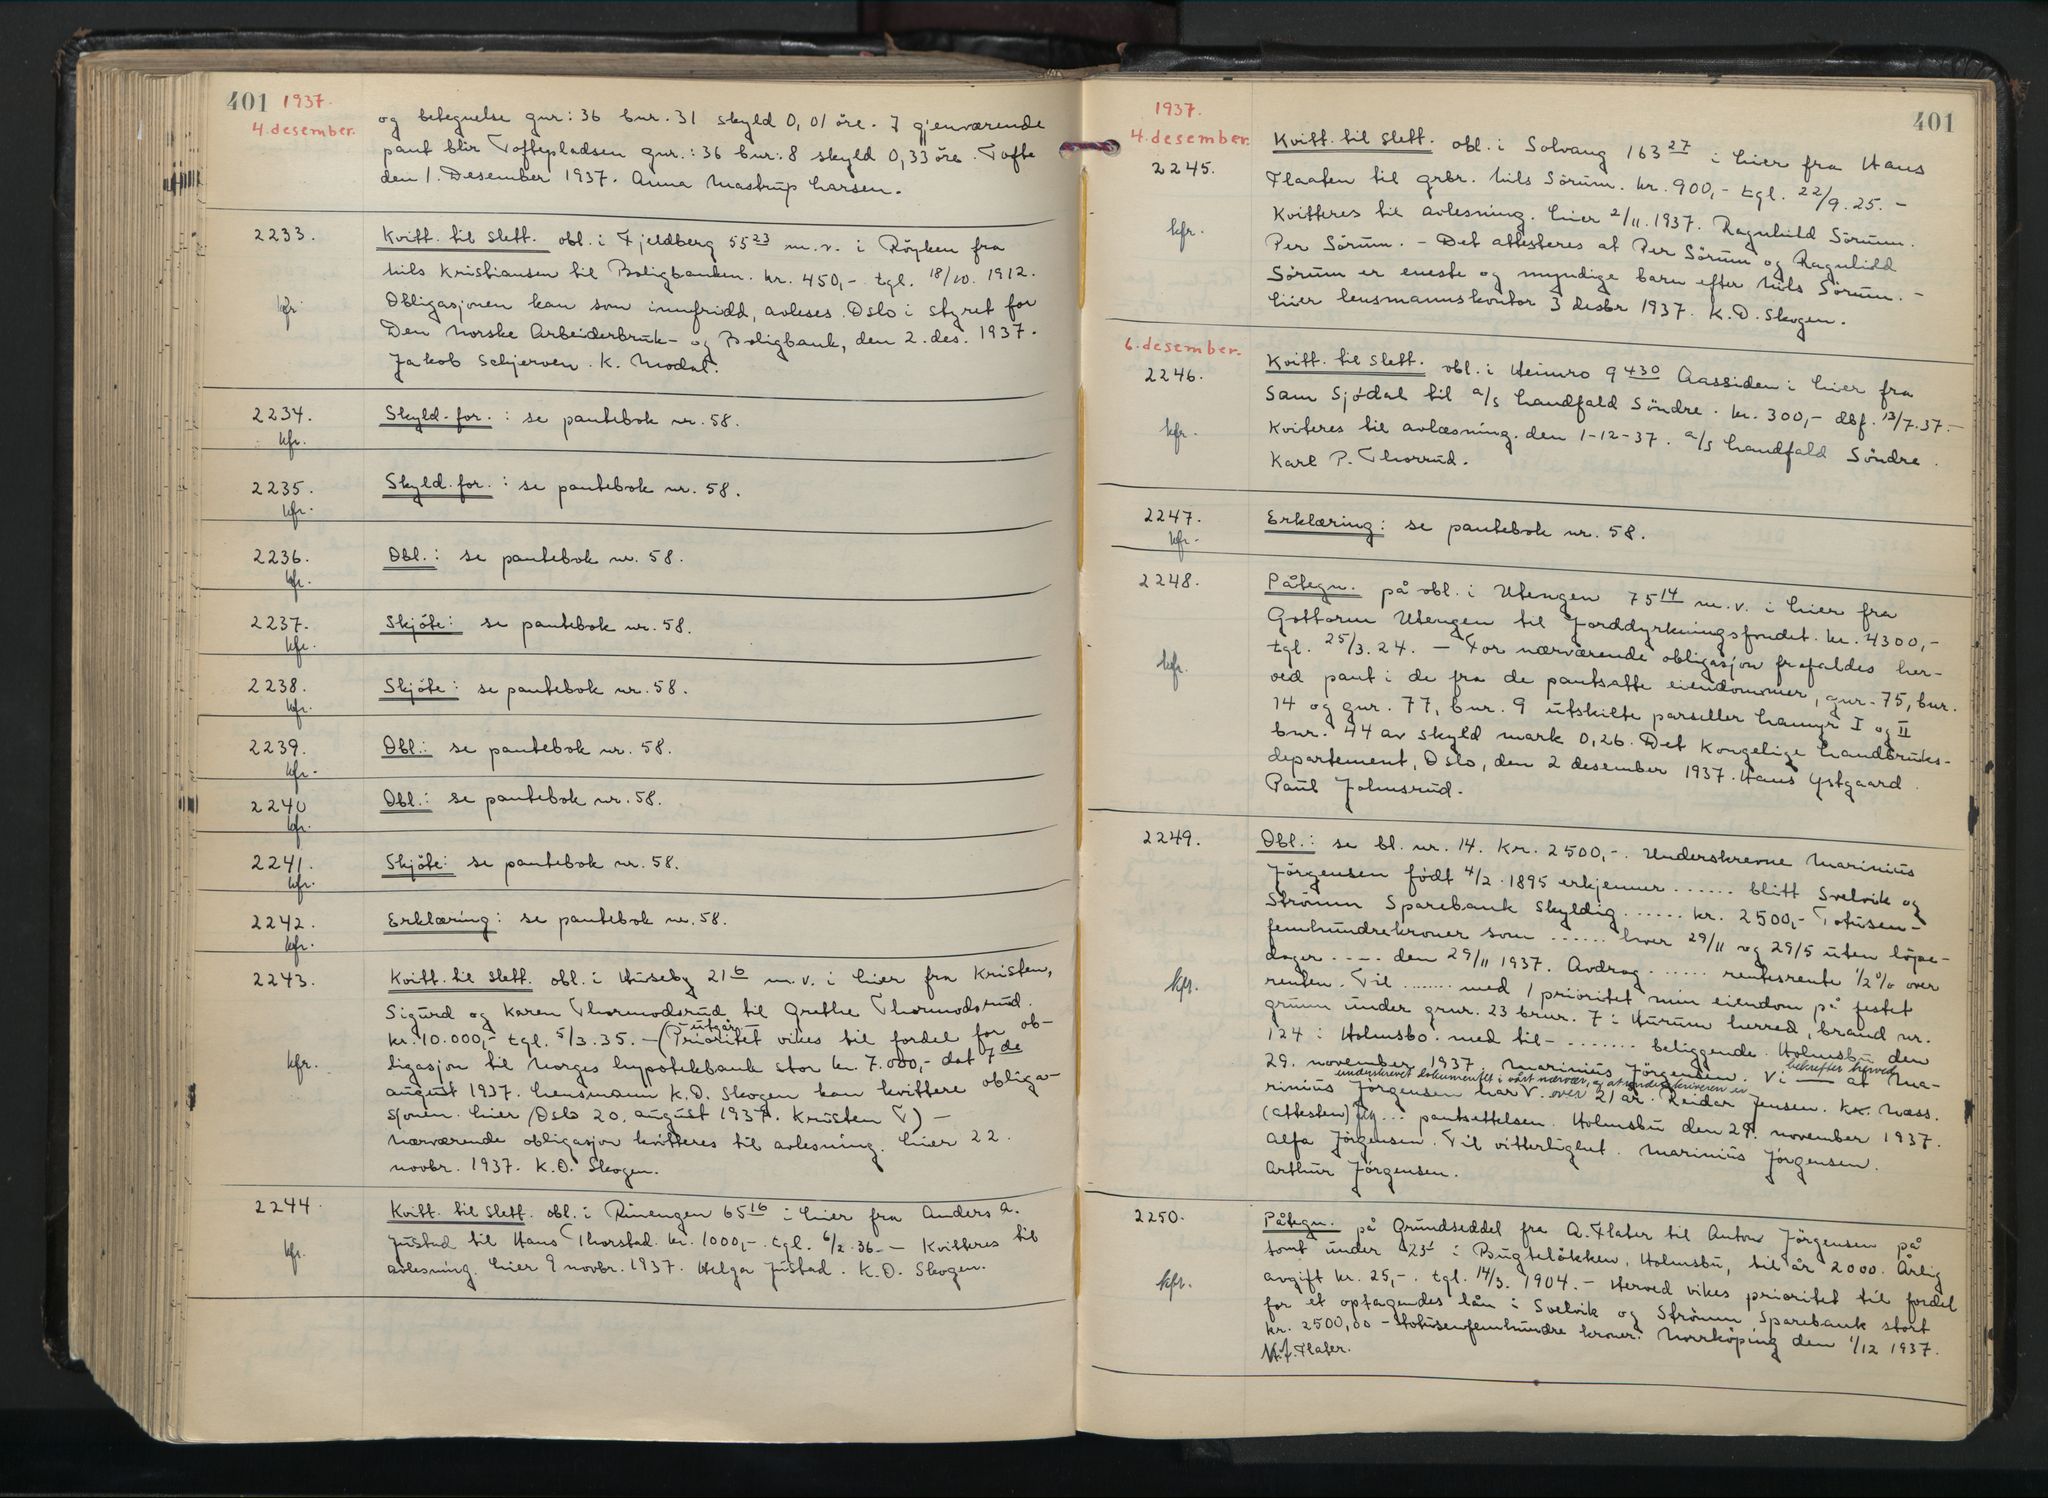 401 1937.
4. desember.
og betegnelse gnr: 36 bnr. 31 skyld 0,01 öre. I gjenværende
pant blir Toftepladsen gnr.: 36 bnr: 8 skyld 0,33 öre. Tofte
den 1. Desember 1937. Anna Mastrup Larsen.
2233.
kfr.
Kvitt. til slett. obl. i Fjeldberg 55 23 m.v. i Röyken fra
Nils Kristiansen til Boligbanken. kr. 450,- tgl. 18/10. 1912.
Obligasjonen kan som innfridd, avleses. Oslo i styret for
Den Norske Arbeiderbruk- og Boligbank, den 2. des. 1937.
Jakob Schjerven. K. Modal.
2234.
kfr.
Skyld. for. : se pantebok nr. 58.
2235.
kfr.
Skyld. for. : se pantebok nr. 58.
2236.
kfr.
Obl.: se pantebok nr. 58.
2237.
kfr.
Skjöte: se pantebok nr. 58.
2238.
kfr.
Skjöte: se pantebok nr. 58.
2239.
kfr.
Obl.: se pantebok nr. 58.
2240
kfr.
Obl.: se pantebok nr. 58.
2241.
kfr.
Skjöte: se pantebok nr. 58.
2242.
kfr.
Erklæring: se pantebok nr. 58.
2243.
kfr.
Kvitt. til slett. obl. i Huseby 21 6 m.v. i Lier fra Kristen,
Sigurd og Karen Thormodsrud til Grethe Thormodsrud.
kr. 10.000,- tgl. 5/3. 35. - (utgår Prioritet vikes til fordel for ob-
ligasjon til Norges hypotekbank stor kr. 7.000,- dat 7 de
august 1937. Lensmann K.O. Skogen kan kvittere obliga-
sjonen. Lier / Oslo 20. august 1937. Kristen T) -
Nærværende obligasjon kvitteres til avlesning. Lier 22.
novbr. 1937. K.O. Skogen.
2244.
kfr.
Kvitt. til slett. obl. i Rinengen 65 16 i Lier fra Anders A.
Justad til Hans Thorstad. kr. 1000,- tgl. 6/2. 36. - Kvitteres til
avlesning. Lier 9 novbr. 1937. Helga Justad. K.O. Skogen.
1937.
401
4. desember.
2245.
kfr.
Kvitt. til slett. obl. i Solvang 163 27 i Lier fra Hans
Flaaten til grbr. Nils Sörum. kr. 900,- tgl. 22/9. 25. -
Kvitteres til avlesning. Lier 2/11. 1937. Ragnhild Sörum.
Per Sörum. - Det attesteres at Per Sörum og Ragnhild
Sörum er eneste og myndige barn efter Nils Sörum. -
Lier lensmannskontor 3 desbr 1937. K.O. Skogen.
6. desember.
2246.
kfr.
Kvitt. til slett. obl. i Heimro 9 430 Aassiden i Lier fra
Sam Sjödal til a/s Landfald Söndre. kr. 300,- dbf. 13/7. 37. -
Kviteres til avlæsning. den 1-12-37. a/s Landfald Söndre.
Karl P. Thorrud.
2247.
kfr.
Erklæring: se pantebok nr. 58.
2248.
kfr.
Påtegn. på obl. i Utengen 75 14 m.v. i Lier fra
Gottorm Utengen til Jorddyrkningsfondet. kr. 4300,-
tgl. 25/3. 24. - For nærværende obligasjon frafaldes her-
ved pant i de fra de pantsatte eiendommer, gnr. 75, bnr.
14 og gnr. 77, bnr. 9 utskilte parseller Lamyr I og II
bnr. 44 av skyld mark 0,26. Det Kongelige Landbruks-
departement, Oslo, den 2 desember 1937. Hans Ystgaard.
Paul Johnsrud.
2249.
kfr.
Obl.: se bl. nr. 14. Kr. 2500,-. Underskrevne Marinius
Jörgensen födt 4/2. 1895 erkjenner ...... blitt Svelvik og
Strömm Sparebank skyldig ...... kr. 2500,- Totusen-
femhundrekroner som ...... hver 29/11 og 29/5 uten löpe-
dager ..... den 29/11 1937. Avdrag ...... rentesrente 1/2% over
renten. Til ........ med 1 prioritet min eiendom på festet
grunn under gnr. 23 bnr. 7 i Hurum herred, brand nr.
124 i Holmsbo. med til- ........ beliggende. Holmsbu den
29. november 1937. Marinius Jörgensen. Vi bekrefter herved at Ma-
underskrevet dokumentet i vårt nærvær, og at underskriveren er
rinius Jörgensen har V. over 21 år. Reidar Jensen. Kr. Næss.
(attesten) Jeg ... pantsettelsen. Holmsbu den 29. november 1937.
Alfa Jörgensen. Til vitterlighet. Marinius Jörgensen.
Arthur Jörgensen.
2250.
kfr.
Påtegn. på Grundseddel fra A. Flater til Anton Jörgensen på
tomt under 23 1 i Bugtelökken, Holmsbu, til år 2000. Årlig
avgift kr. 25,-. tgl. 14/3. 1904. - Herved vikes prioritet til fordel
for et optagendes lån i Svelvik og Strömm Sparebank stort
kr. 2500,00 - totusenfemhundre kroner. Norrköping den 1/12 1937.
Flater.